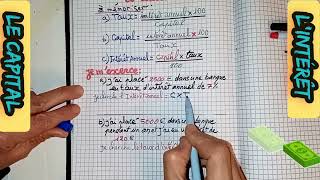 LE CAPITAL
L'INTÉRÊT
à mémoriser :
a) Taux = intérêt annuel x 100
Capital
b) Capital = intérêt annuel x 100
Taux
c) Intérêt annuel = Capital x taux
100
je m'exerce :
a) j'ai placé 2500 € dans une banque
au taux d'intérêt annuel de 7%
Intérêt annuel = C x T
b) j'ai placé 5000 € dans une banque
pendant un an et j'ai eu un intérêt de
120 €
je cherche le taux d'intérêt